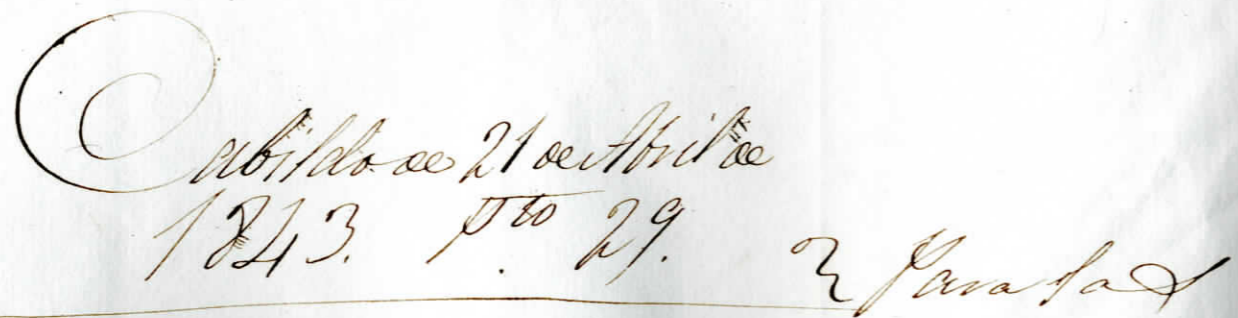 Cabildo de 21 de Abril de
1843. pto 29.
Para la